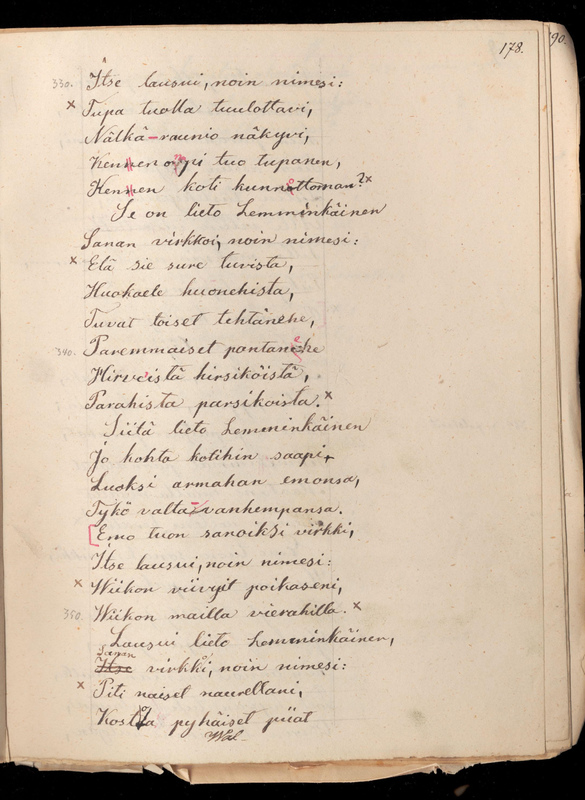 178.
90.
330. Itse lausui, noin nimesi:
x Tupa tuolla tuulottavi,
Nälkä-raunio näkyvi,
Kennen orjii tuo tupanen,
Kennen koti kunnottoman? x
Se on lieto Lemminkäinen
Sanan virkkoi, noin nimesi:
x Elä sie sure tuvista,
Huokaele huonehista,
Tuvat toiset tehtänehe,
340. Paremmaiset pantanehe
Hirveistä hirsiköistä,
Parahista parsikoista. x
Siitä lieto Lemminkäinen
Jo kohta kotihin saapi,
Luoksi armahan emonsa,
Tykö valta-vanhempansa.
[Emo tuon sanoiksi virkki,
Itse lausui, noin nimesi:
x Wiikon viivyit poikaseni,
350. Wiikon mailla vierahilla. x
Lausui lieto Lemminkäinen,
Sanan
Itse virkki, noin nimesi:
x Piti naiset naurellani,
Kostla pyhäiset piiat
Wal-